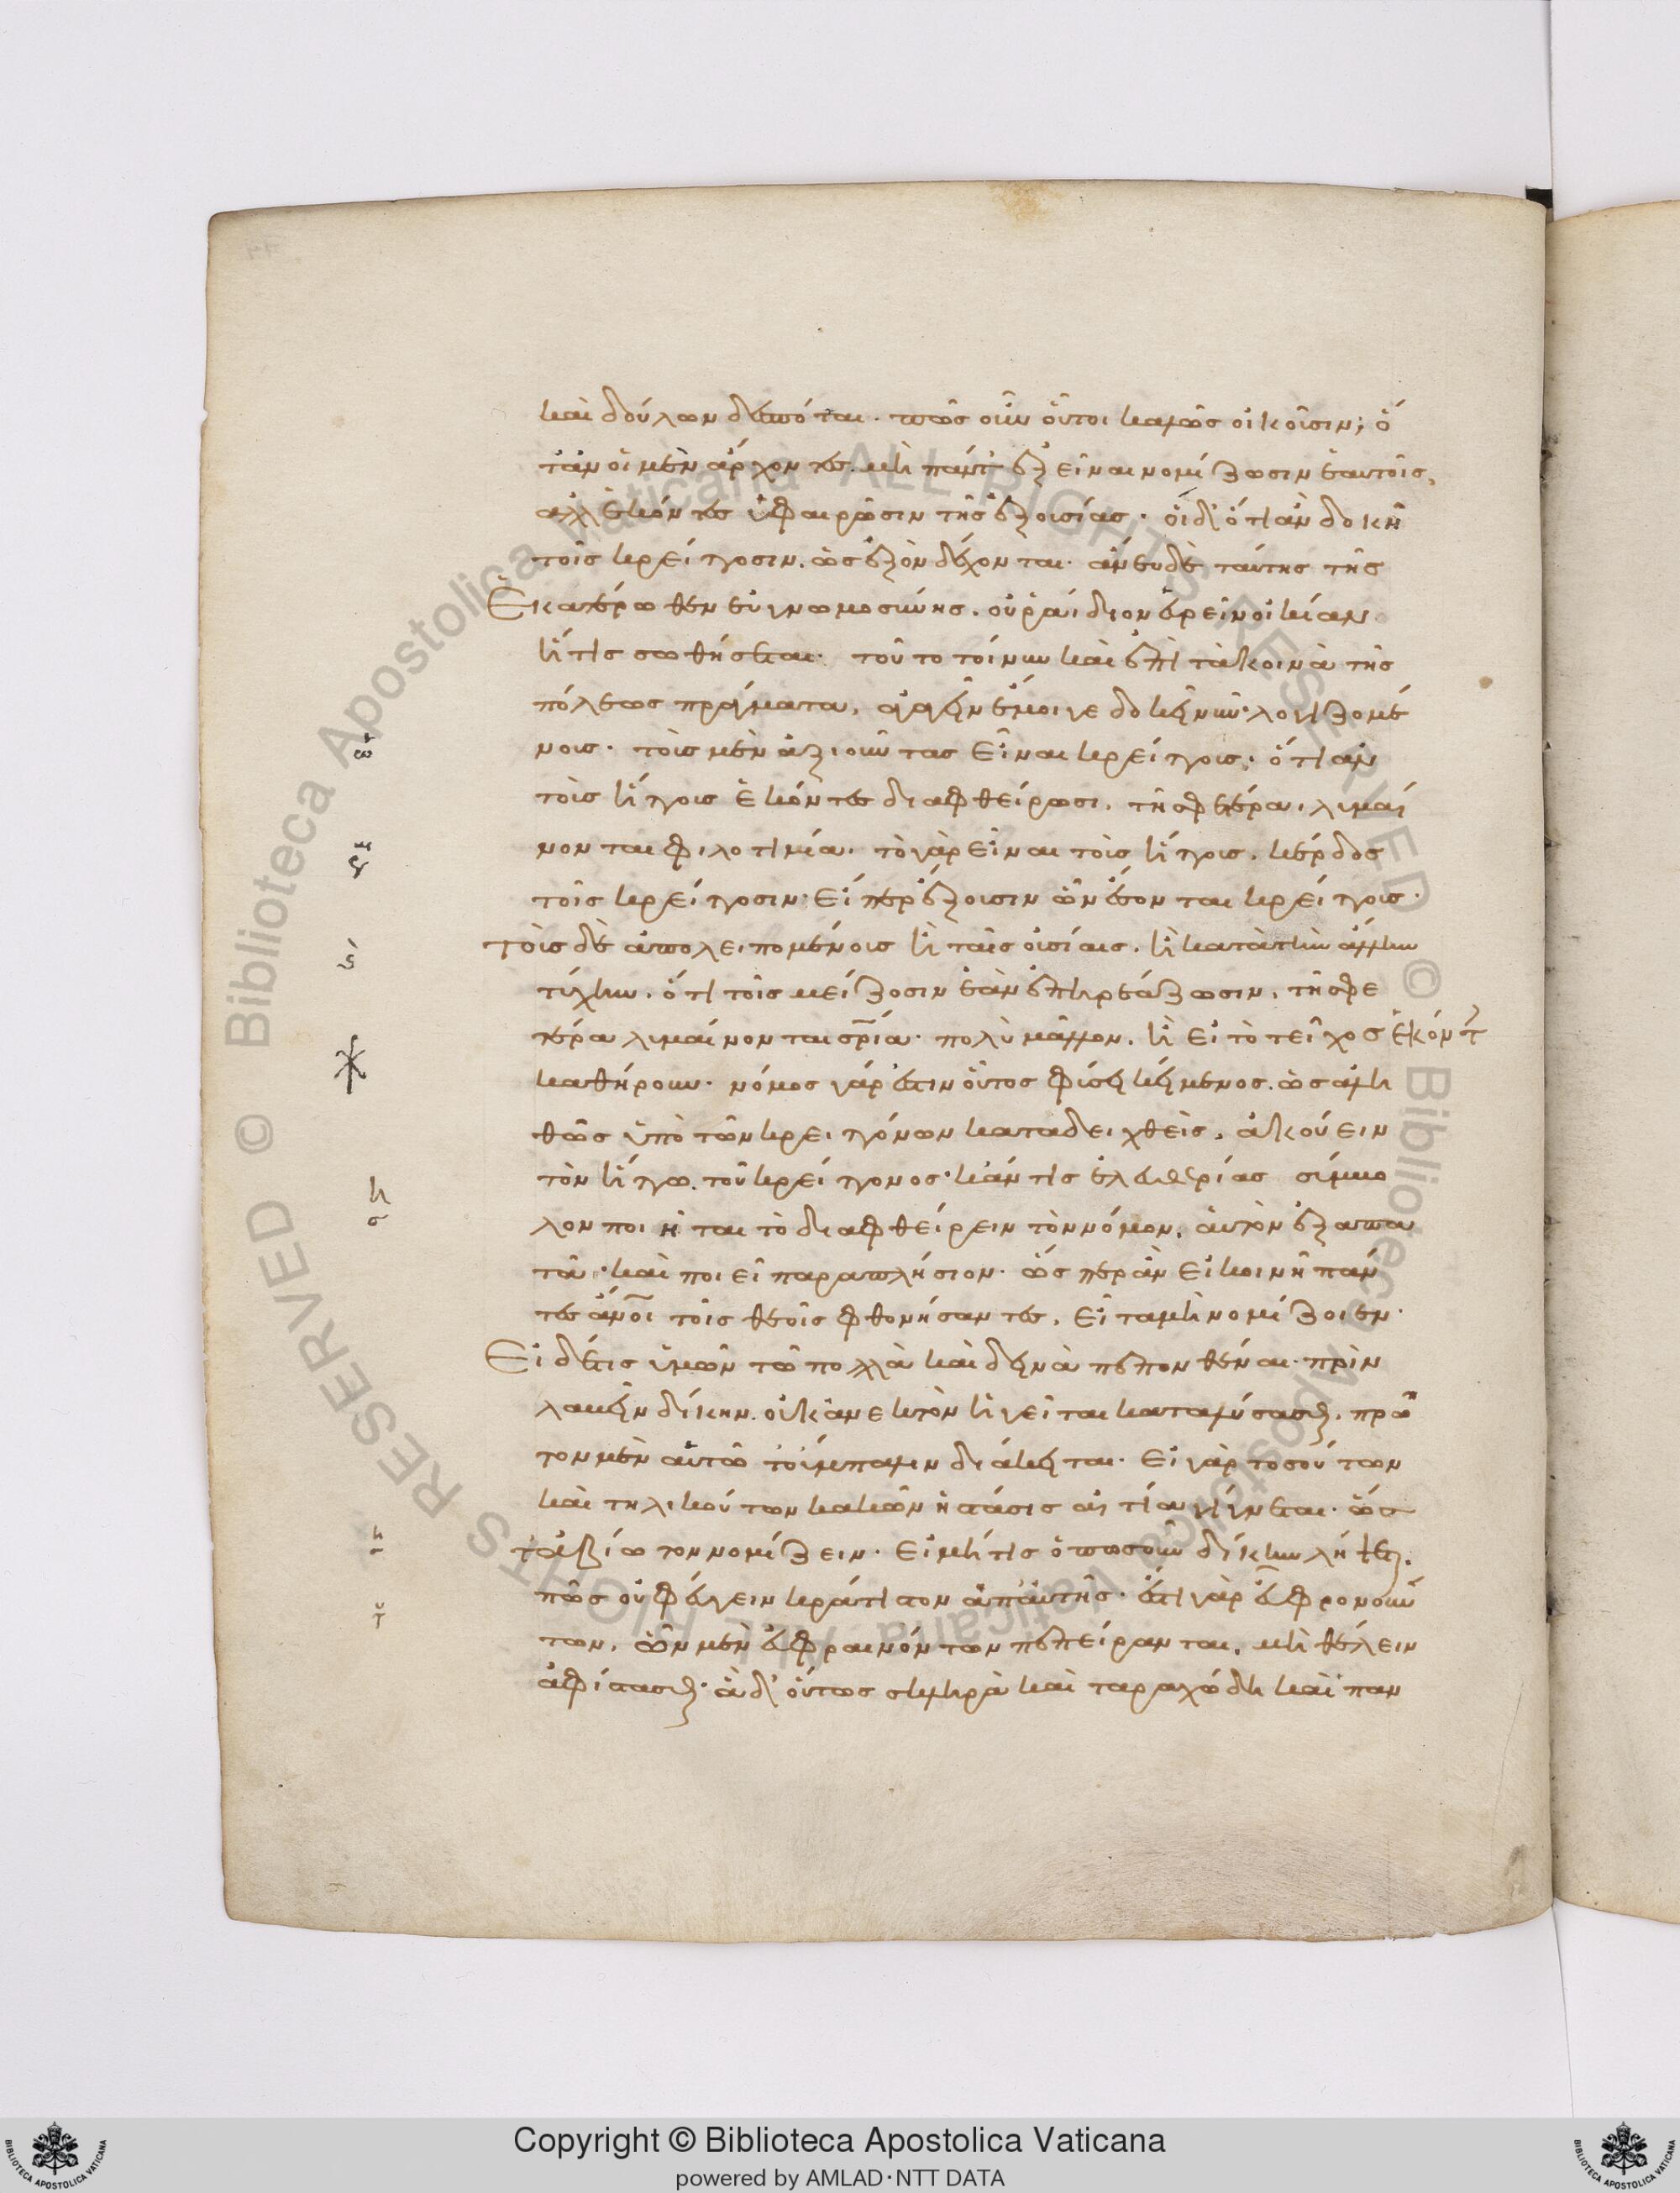 καὶ δούλων δεσπόται. πῶς οὖν οὗτοι καλῶς οἰκοῦσιν; ὅ
τὰν οἱ μὲν ἄρχοντες. μὴ πάντ' ἐξεῖναι νομίζωσιν ἑαυτοῖς,
ἀλλ' ἑκόντες ὑφαιρῶσιν τῆς ἐξουσίας. οἱ δ' ὅτι ἂν δοκῆ
τοῖς κρείττοσιν. ὡς ἐξὸν δέχονται. ἄνευ δὲ ταύτης τῆς
Ἑκατέρωθεν εὐγνωμοσύνης. οὐ ῥάιδιον εὑρεῖν οἰκίαν
ἥτις σωθήσεται. τοῦτο τοίνυν καὶ ἐπὶ τὰ κοινὰ τῆς
πόλεως πράγματα, ἄγειν ἔμοιγε δοκεῖν ὑμῖν. λογιζομέ
νοις. τοῖς μὲν ἀξιοῦντας εἶναι κρείττοις. ὅτι ἂν
τοῖς ἥττοις ἑκόντες διαφθείρωσι, τῆ σφετέρα, λυμαί
νονται φιλοτιμία. τὸ γὰρ εἶναι τοῖς ἥττοις. κέρδος
τοῖς κρείττοσιν. εἴπερ ἕξουσιν ὧν ἔσονται κρείττοις.
τοῖς δὲ ἀπολειπομένοις ἢ ταῖς οὐσίαις. ἢ κατὰ τὴν ἄλλην
τύχην. ὅτι τοῖς μείζοσιν ἐὰν ἐπηρεάζωσιν. τῆ σφε
τέρα λυμαίνονται σ̅ρ̅ία. πολὺ μᾶλλον. ἢ εἰ τὸ τεῖχος ἑκόντ
καθήρουν. νόμος γάρ ἐστιν οὗτος φύσει κείμενος. ὡς ἀλη
θῶς ὑπὸ τῶν κρειττόνων καταδειχθεὶς, ἀκούειν
τὸν ἥττω. τοῦ κρείττονος. κἄν τις ἐλευθερίας σύμβο
λον ποιῆται τὸ διαφθείρειν τὸν νόμον, αὑτὸν ἐξαπα
τᾶ. καὶ ποιεῖ παραπλήσιον. ὥσπερ ἂν εἰ κοινῆ πάν
τες ἄν̅ο̅ι τοῖς θεοῖς φθονήσαντες, εἶτα μὴ νομίζοιεν.
Εἰ δέ τις ὑμῶν τῶ πολλὰ καὶ δεινὰ πεπονθέναι. πρὶν
λαβεῖν δίκην. οὐκ ἀνεκτὸν ἡγεῖται καταλύσασθαι. πρῶ
τον μὲν αὐτῶ τοὔμπαλιν διάκειται. εἰ γὰρ τοσούτων
καὶ τηλικούτων κακῶν ἡ στάσις αἰτία γίγνεται. ὥστ'
ἀβίωτον νομίζειν. εἰ μή τις ὁπωσοῦν δίκην λήψεται.
πῶς οὐ φεύγειν κράτιστον ἀπ' αὐτῆς. ἔστι γὰρ εὖ φρονούν
των. ὧν μὲν εὐφραινόντων πεπείρανται. μὴ θέλειν
ἀφίστασθαι. ἃ δ' οὕτως σκληρὰ καὶ ταραχώδη καὶ παν